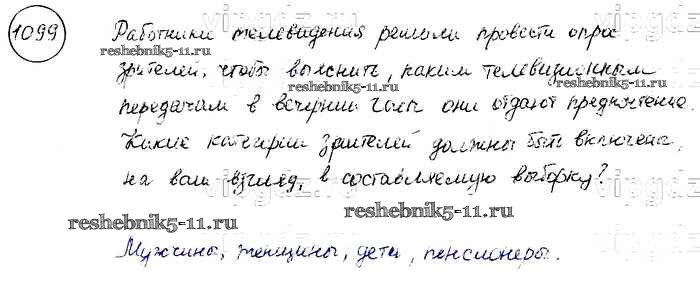 1099
Работники телевидения решили провести опрос
reshebnik5-11.ru
зрителей, чтобы выяснить, каким телевизионным
reshebnik5-11.ru
передачам в вечерние часы они отдают предпочтение.
Какие категории зрителей должны быть включены,
на ваш взгляд, в составляемую выборку?
reshebnik5-11.ru
reshebnik5-11.ru
Мужчины, женщины, дети, пенсионеры.